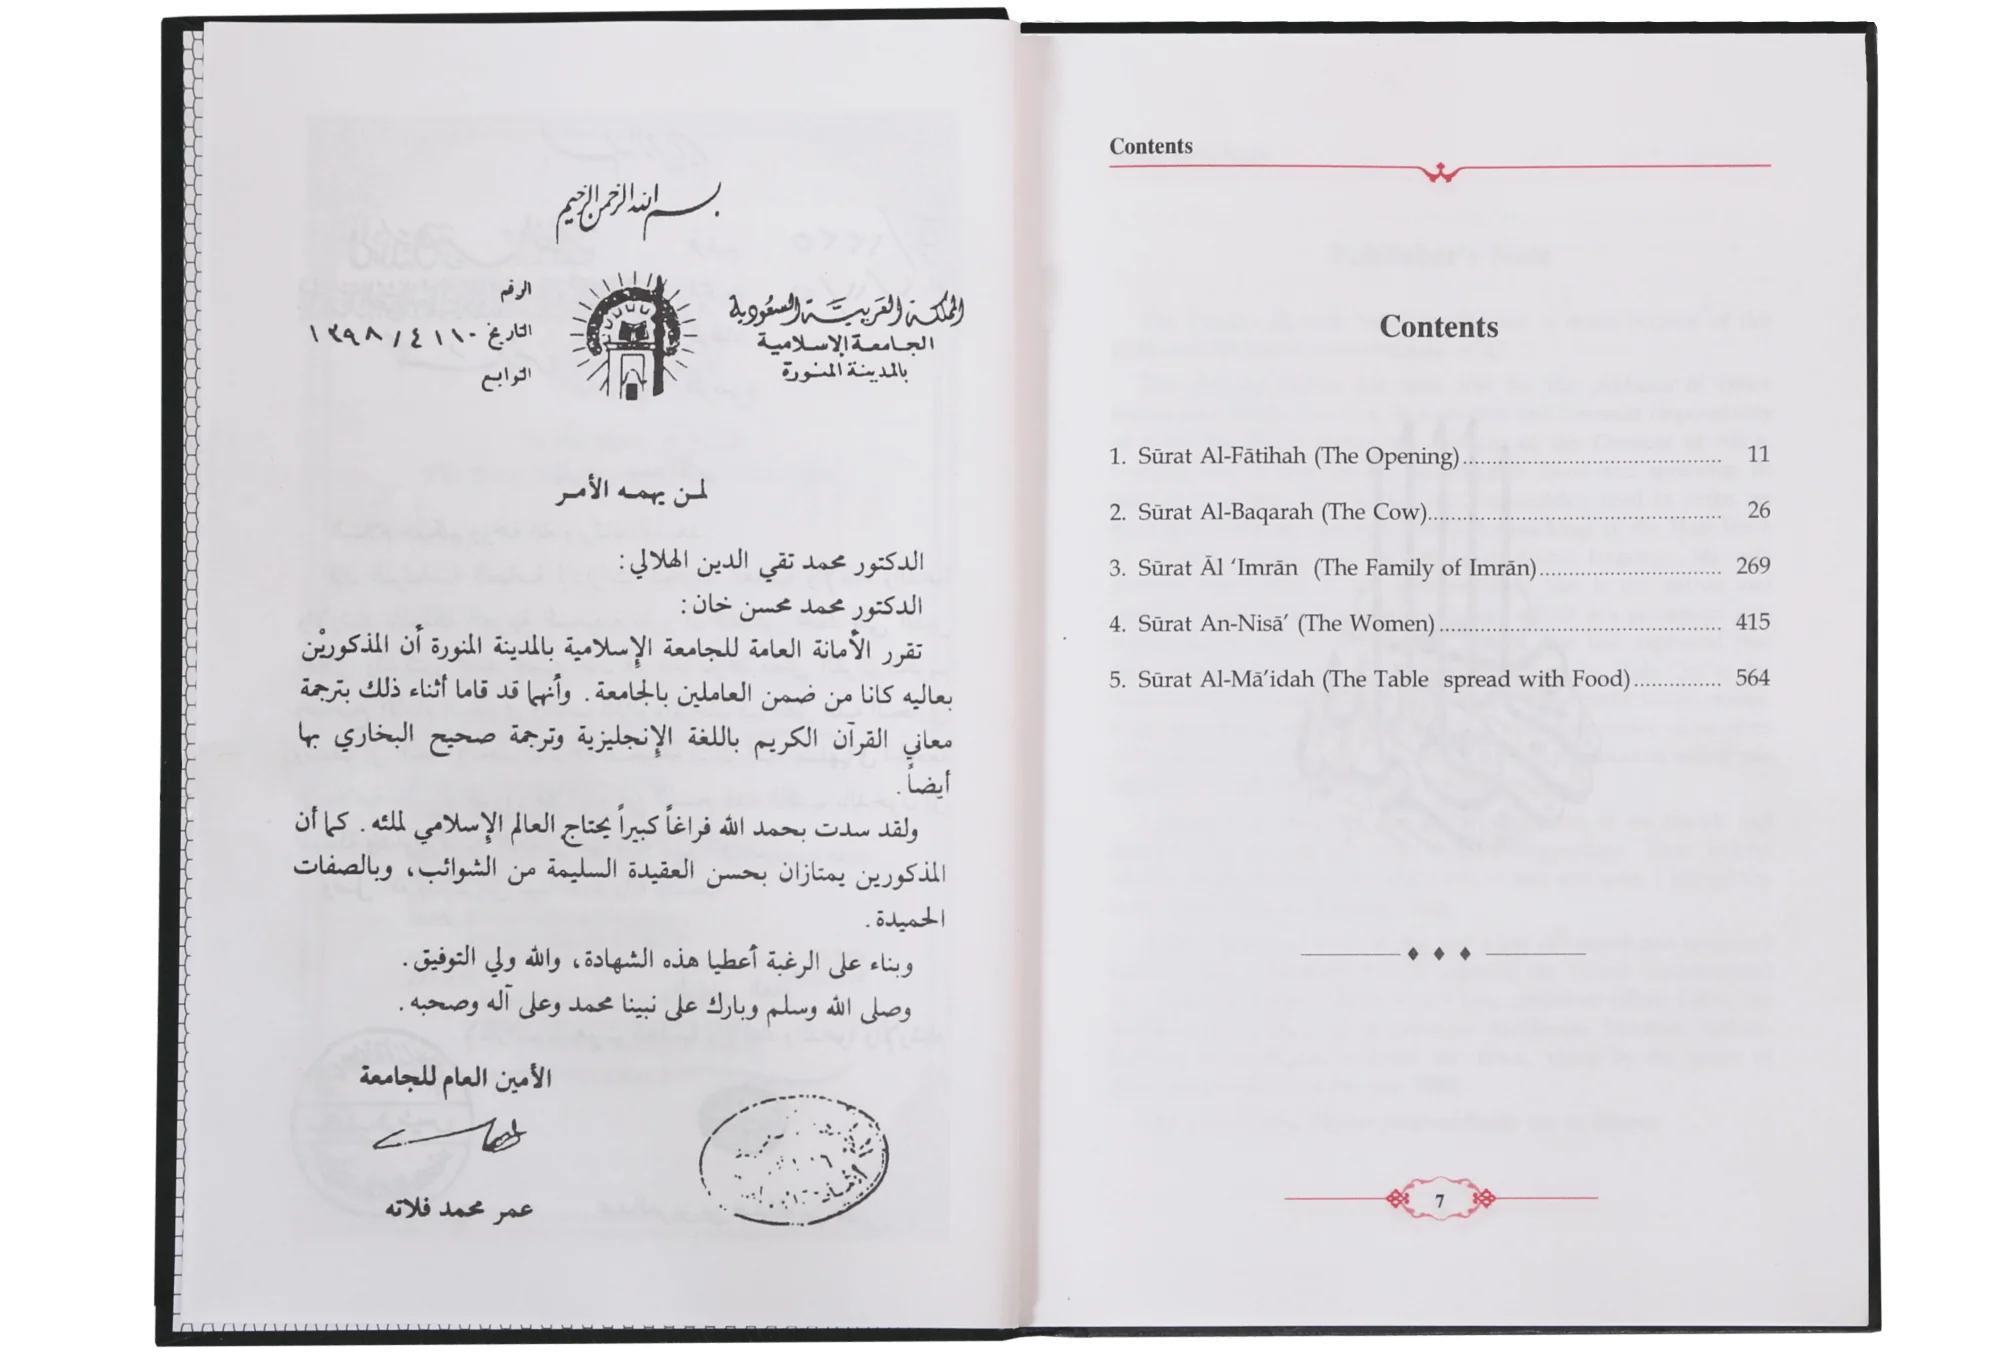 بسم الله الرحمن الرحيم
المملكة العربية السعودية
الجامعة الإسلامية
بالمدينة المنورة
الرقم
التاريخ ١٠ ١ ٤ / ١٣٩٨
التوابع
لمن يهمه الأمر
الدكتور محمد تقي الدين الهلالي :
الدكتور محمد محسن خان :
تقرر الأمانة العامة للجامعة الإسلامية بالمدينة المنورة أن المذكوريْن
بعاليه كانا من ضمن العاملين بالجامعة . وأنهما قد قاما أثناء ذلك بترجمة
معاني القرآن الكريم باللغة الإنجليزية وترجمة صحيح البخاري بها
أيضاً .
ولقد سدت بحمد الله فراغاً كبيراً يحتاج العالم الإسلامي لملئه . كما أن
المذكورين يمتازان بحسن العقيدة السليمة من الشوائب، وبالصفات
الحميدة .
وبناء على الرغبة أعطيا هذه الشهادة، والله ولي التوفيق .
وصلى الله وسلم وبارك على نبينا محمد وعلى آله وصحبه .
الأمين العام للجامعة
عمر محمد فلاته
Contents
Contents
1. Sūrat Al-Fātihah (The Opening)........................................ 11
2. Sūrat Al-Baqarah (The Cow)............................................. 26
3. Sūrat Āl ‘Imrān (The Family of Imrān)............................ 269
4. Sūrat An-Nisā’ (The Women)............................................ 415
5. Sūrat Al-Mā’idah (The Table spread with Food)............... 564
7